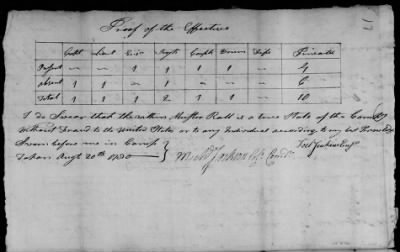 Proof of the Effectives
Capt Lieut Ens Sergts Corpls Drums Fifes Privates
Present — — 1 1 1 1 — 4
Absent 1 1 — 1 — — — 6
Total 1 1 1 2 1 1 — 10
I do Swear that the within Muster Roll is a true State of the Company
without Fraud to the United States or to any Individual according to my best Knowledge
Sworn before me in Camp
Augt 20th 1780